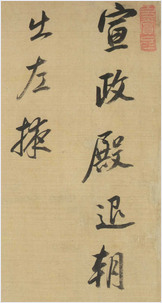 宣政殿退朝
出左掖